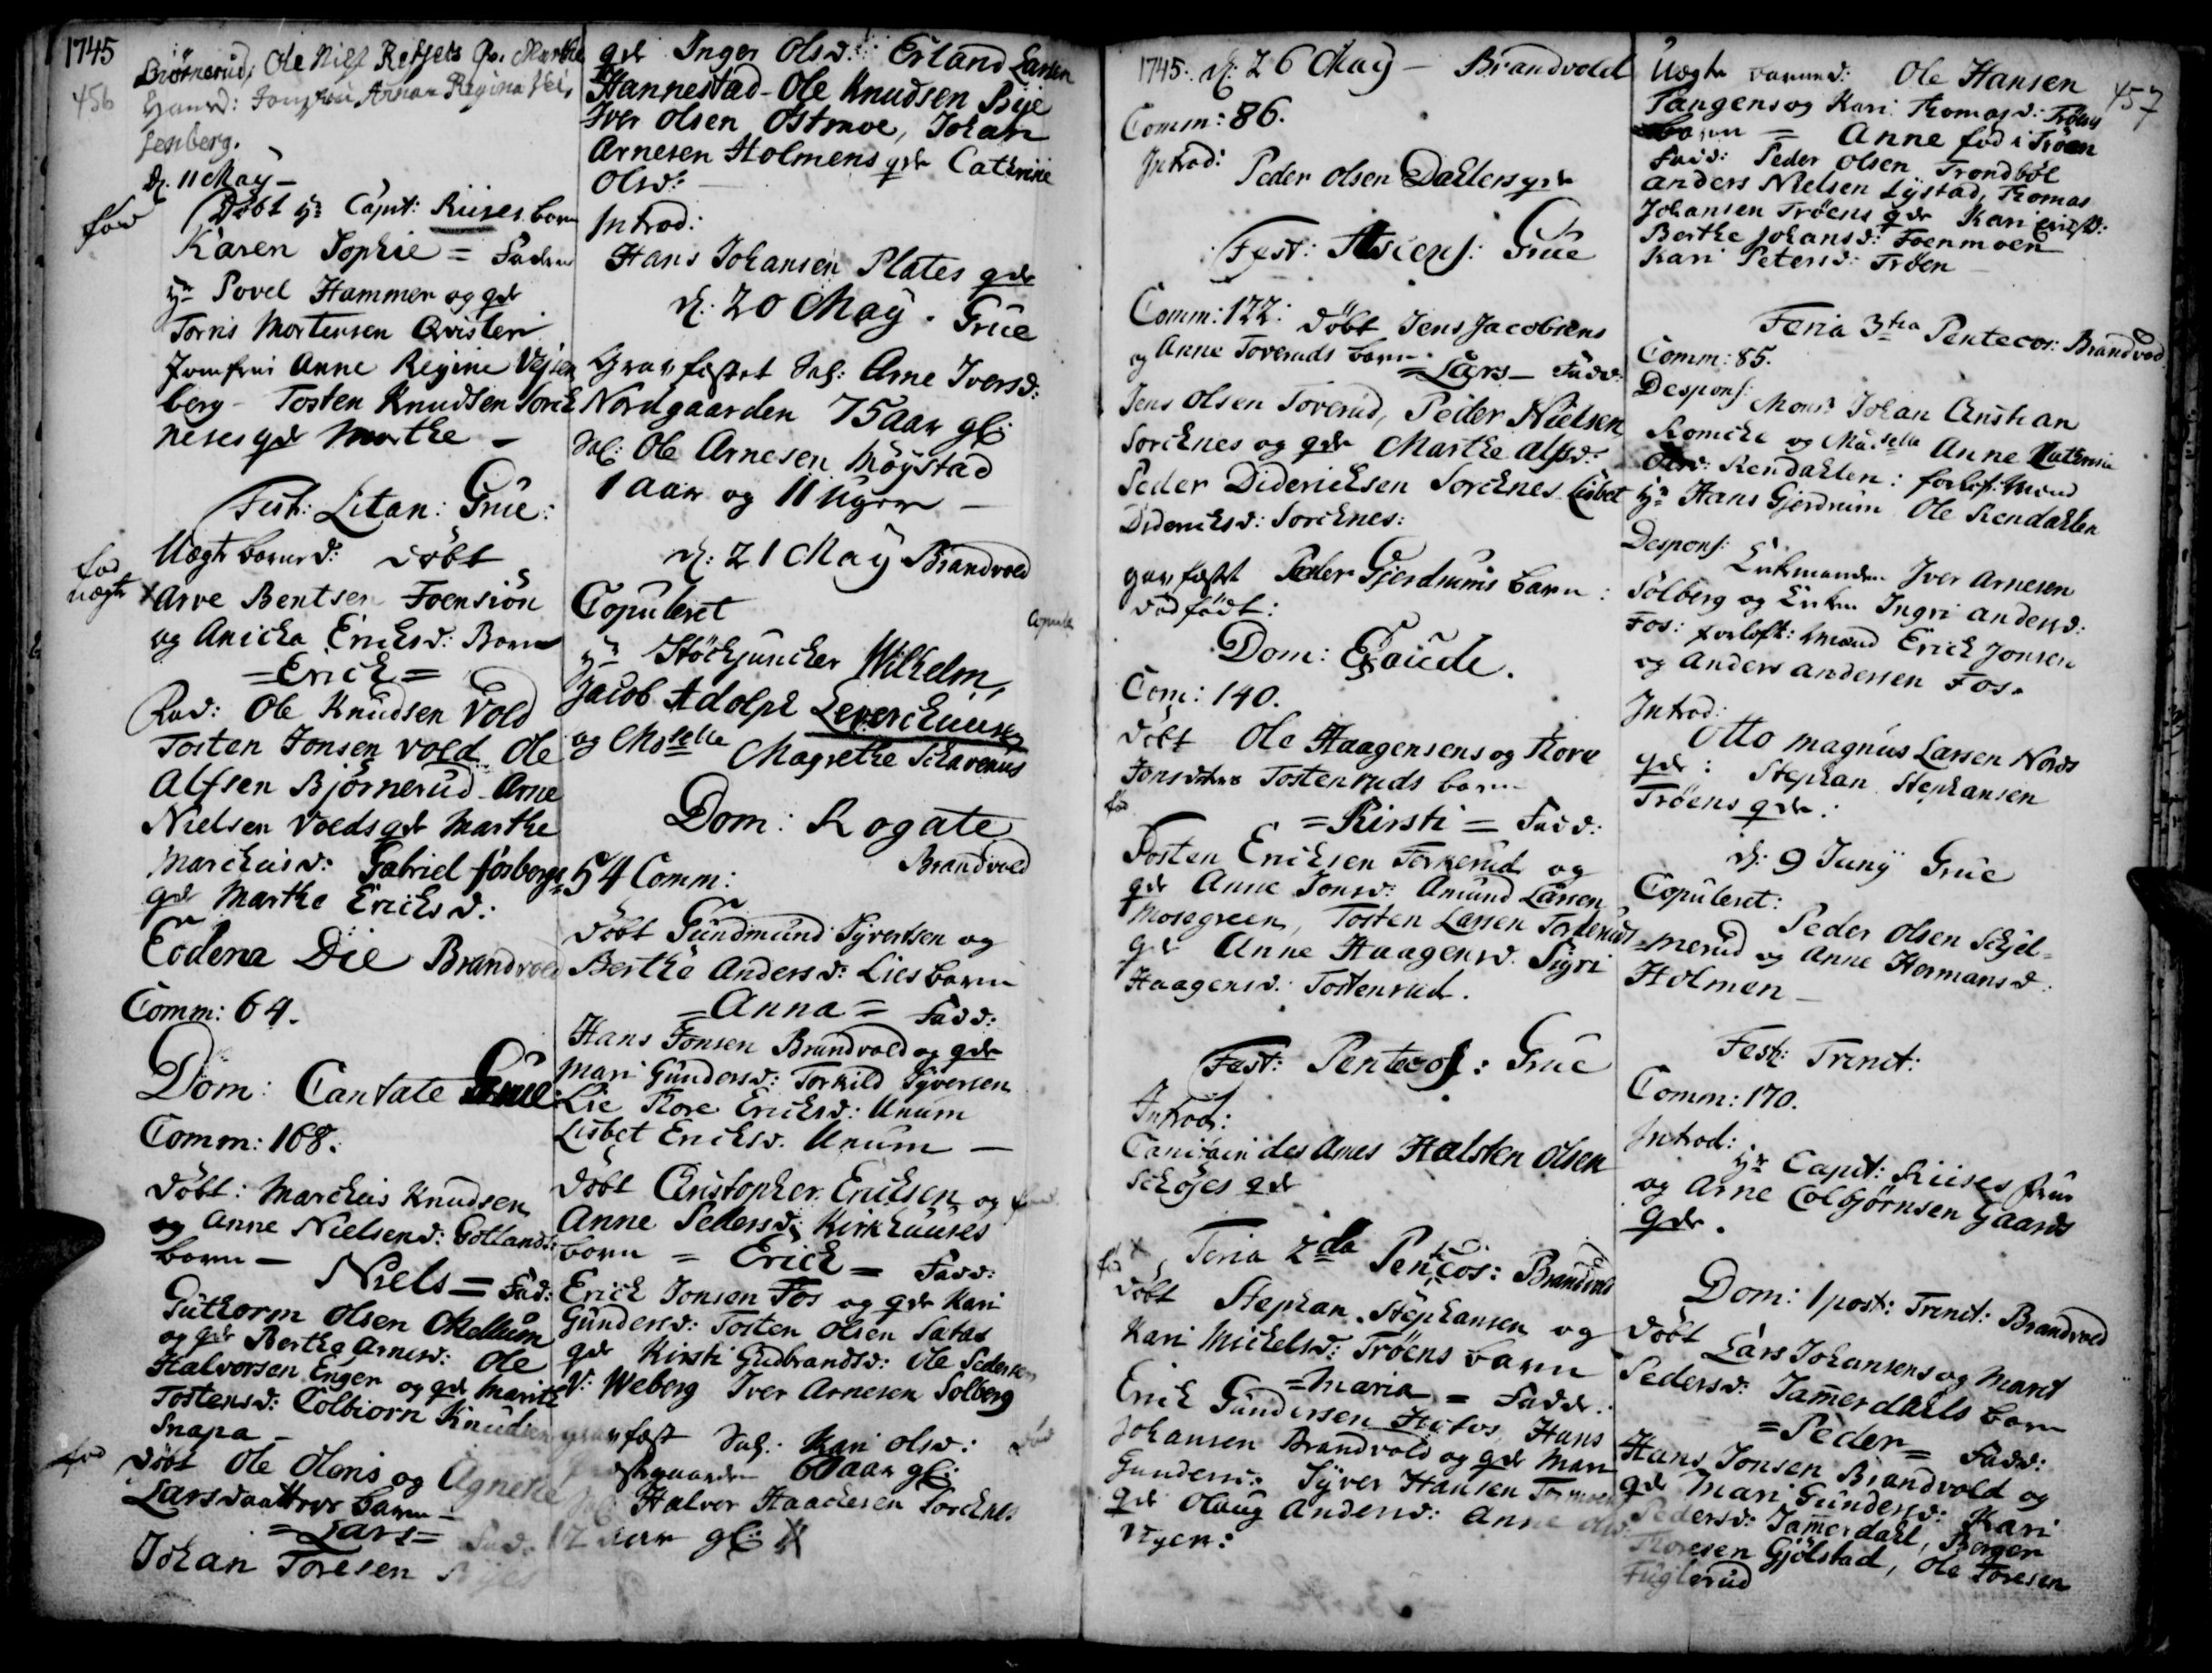 1745
456
Biørnerud, Ole Niels Refsets Qv. Marthe
Hansd: Jomfrue Anna Regina Vei,
senberg.
d. 11 May -
fød
Døbt Hr Capit: Riises barn
Karen Sophie = Faddere
Hr Povel Hammer og qde
Torris Mortensen Qvisteri
Jomfrui Anne Regine Vejsen
berg - Tosten Knudsen Sorck
neses qde Marthe -
Fest: Litan: Grue:
fød
uægte
Uægte barnd: døbt
Arve Bentsen Foensiøn
og Anicka Ericksd: Barn
= Erick =
Fad: Ole Knudsen Vold
Tosten Jonsen Vold Ole
Alfsen Bjørnerud - Arne
Nielsen Volds qde Marthe
Marckusd: Gabriel forborgs
qde Marthe Ericksd:
Eodem Die Brandvold
Comm: 64.
Dom: Cantate Grue
Comm: 168.
døbt: Marckus Knudsen
og Anne Nielsend: Gotlands
barn - Niels = Fad:
Guthorm Olsen Mellum
og qde Berthe Arnesd: Ole
Halvorsen Enger og qde Marith
Tostensd: Colbiorn Knudsen
Snapa -
fød
døbt Ole Olens og Agnethe
Larsdaatters barn -
= Lars = Fad.
Johan Toresen Bÿes
qde Inger Olsd: Erland Larsen
Hannestad - Ole Knudsen Bÿe
Iver Olsen Ostmoe, Johan
Arnesen Holmens qde Cathrine
Olsd: -
Introd:
Hans Johansen Plates qde
d: 20 May. Grue
Gravfæstet Sal: Arne Iversd:
Nordgaarden 75 aar gl:
Sal: Ole Arnesen Møystad
1 aar og 11 uger -
d: 21 May Brandvold
Copuleret
Hr Støckjuncker Wilhelm,
Jacob Adolph Leverckuusen
og Mselle Magrethe Schavenius
Copule
Dom: Rogate
Brandvold
54 Comm:
døbt Gundmund Syvertsen og
Berthe Andersd: Lies barn
= Anna = Fadd:
Hans Jonsen Brandvold og qde
Mari Gundersd: Torkild Syversen
Lie Tore Ericksd: Unum
Lisbet Ericksd: Unum -
døbt Christopher Ericksen og
Anne Pedersd: Kirkhuuses
barn = Erick = Fadd:
Erick Jonsen Fos og qde Kari
Gundersd: Tosten Olsen Satas
qde Kirsti Gudbrandsd: Ole Pedersen
V: Weberg Iver Arnesen Solberg
gravfæst Sal: Kari Olsd: død
Præstegaarden 60 aar gl:
Sal: Halvor Haackesen Sorcknes
12 aar gl:
1745. d: 26 May - Brandvold
Comm: 86.
Introd: Peder Olsen Dahlers qde
Fest: Ascens: Grue
Comm: 122: døbt Jens Jacobsens
og Anne Toveruds barn
= Lars - Fadd:
Jens Olsen Toverud, Peder Nielsen
Sorcknes og qde Marthe Alfsd:
Peder Didericksen Sorcknes Lisbet
Didericksd: Sorcknes:
gravfæstet Peder Gjerdrums barn:
dødfødt:
Dom: Exaude.
Com: 140.
døbt Ole Haagensens og Tore
Jonsdaters Tostenruds barn
fød
= Kirsti = Fadd:
Tosten Ericksen Torkerud og
qde Anne Jonsd: Amund Larsen
Mosegreen, Tosten Larsen Torderud
qde Anne Haagensd: Sigri
Haagensd: Tostenrud.
Fest: Pentecos: Grue
Introd:
Canitain des Ames Halsten Olsen
Schøjes qde
Feria 2da Pentcos: Brandvold
fød
døbt Stephan Stephansen og
Kari Michelsd: Trøens barn
= Maria = Fadd:
Erick Gundersen Hofos, Hans
Johansen Brandvold og qde Mari
Gundersd: Sÿver Hansen Tormoen
qde Olaug Andersd: Anne Olsd:
Nygen:
457
Uægte barnd: Ole Hansen
Tangens og Kari Thomasd: Trøens
barn = Anne fød i Trøen
Fadd: Peder Olsen Trondbøl
Anders Nielsen Lÿstad, Thomas
Johansen Trøens qde Kari Ericksd:
Berthe Johansd: Foenmoen
Kari Petersd: Trøen -
Feria 3tia Pentecos: Brandvold
Comm: 85.
Despons:
Monsr Johan Christian
Romcke og Ma:selle Anne Cathrina
Olsd: Rendahlen: forlof: Mænd
Hr Hans Gjerdrum Ole Rendahlen
Despons:
Enkemanden Iver Arnesen
Solberg og Enken Ingri Andersd:
Fos: forloft: Mænd Erick Jonsen
og Anders Andersen Fos.
Introd:
Otto Magnus Larsen Nords
qde: Stephan Stephansen
Trøens qde:
d: 9 Junÿ Grue
Copuleret:
Peder Olsen Schjel=
=merud og Anne Hermansd:
Holmen -
Fest: Trenit:
Comm: 170.
Introd:
Hr Capit: Riises frue
og Arne Colbjørnsen Gaards
qde.
Dom: 1 post: Trenit: Brandvold
døbt Lars Johansens og Maret
Pedersd: Jamerdahls barn
= Peder = Fadd:
Hans Jonsen Brandvold og
qde Mari Gundersd: Kari
Pedersd: Jamerdahl, Børger
Thoresen Gjølstad, Ole Toresen
Fuglerud